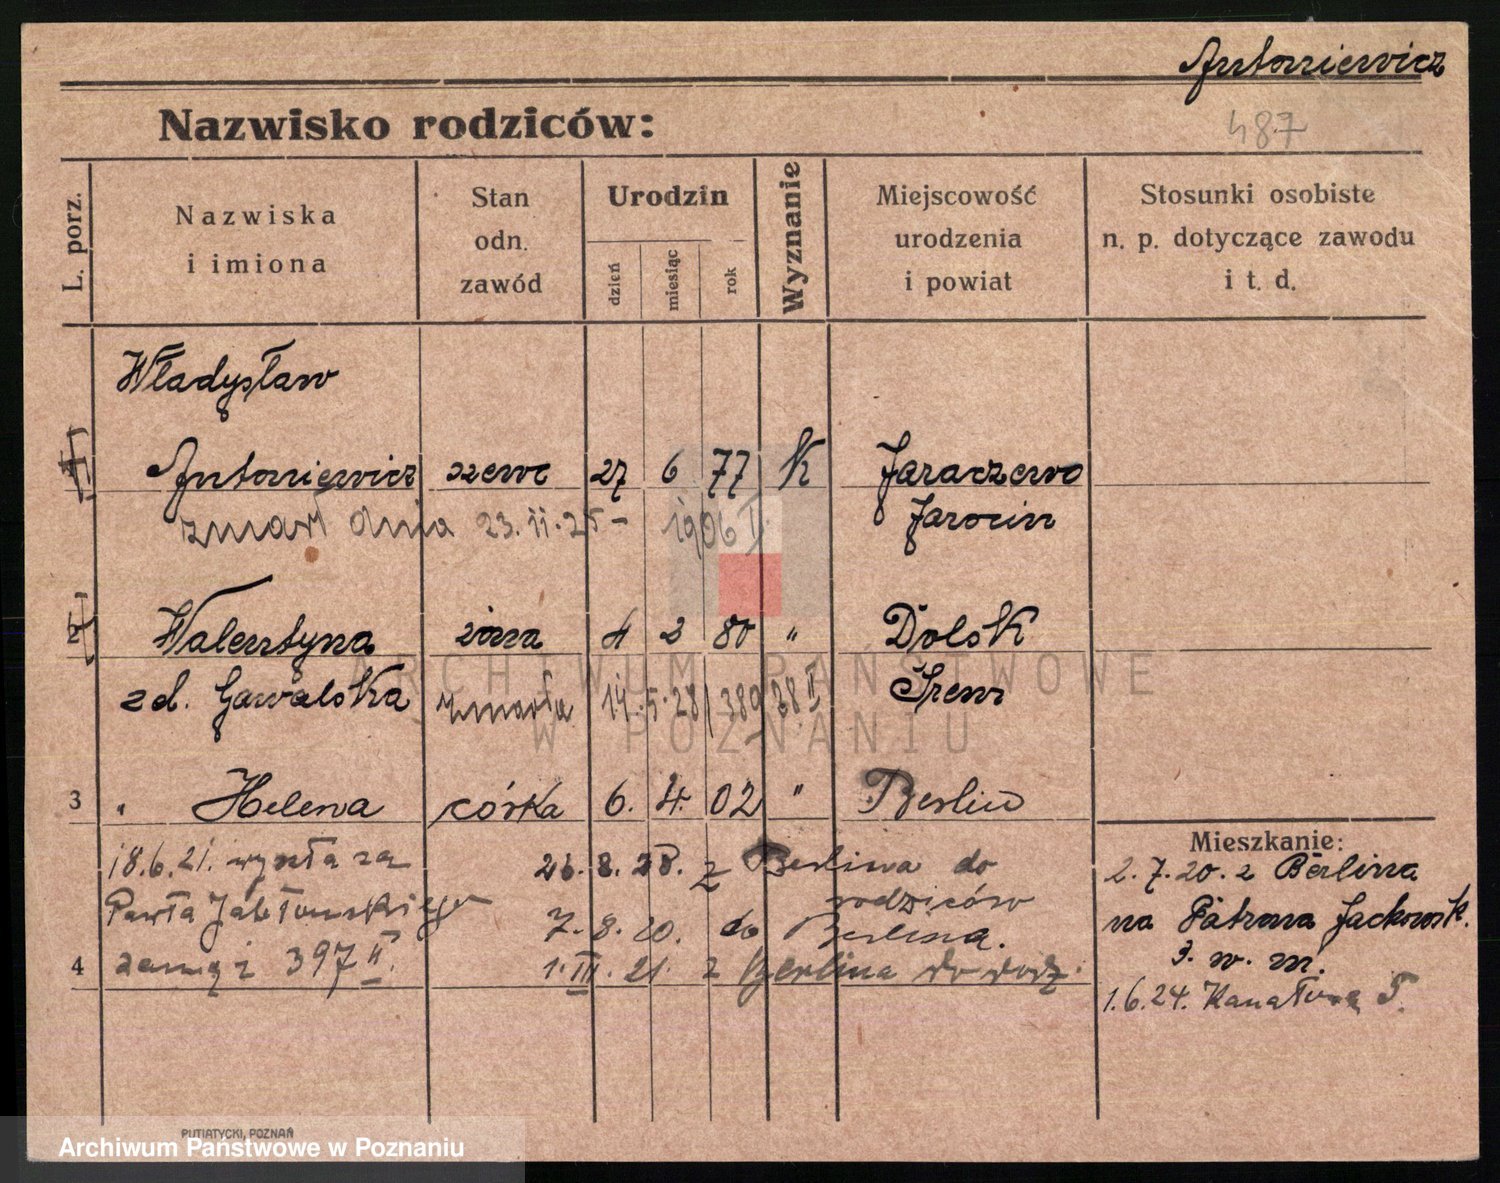 Antoniewicz
Nazwisko rodziców:
487
L. porz.
Nazwiska
i imiona
Stan
odn.
zawód
Urodzin
dzień
miesiąc
rok
Wyznanie
Miejscowość
urodzenia
i powiat
Stosunki osobiste
n. p. dotyczące zawodu
i t. d.
Władysław
Antoniewicz szewc 27 6 77 K Jaraczewo
zmarł dnia 23.11.25 - 1906 II. Jarocin
2 Walentyna żona 4 2 80 " Dolsk
zd. Gawalska zmarła 14.5.28 1389/28 II Śrem
3 " Helena córka 6. 4. 02 " Berlin
18.6.21. wyszła za 26.8.20. z Berlina do
rodziców
Pawła Jabłońskiego 7.8.20. do Berlina.
4 zamąż 397 II. 1.III.21. z Berlina do rodz.
Mieszkanie:
2.7.20. z Berlina
na Patrona Jackowsk.
3. w. m.
1.6.24. Kanałowa 5.
PUTIATYCKI, POZNAŃ
ARCHIWUM PAŃSTWOWE
W POZNANIU
Archiwum Państwowe w Poznaniu